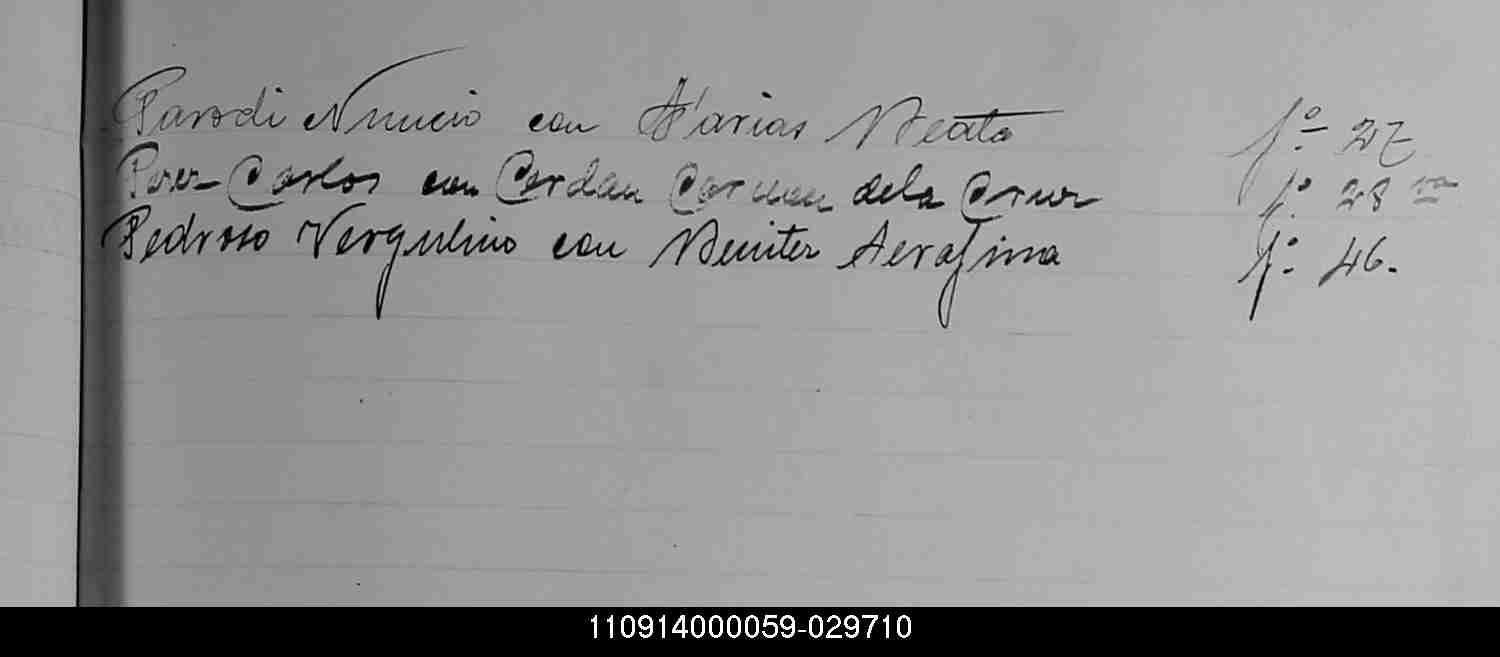 Parodi Nuncio con Farias Beata fº 27
Perez Carlos con Cordan Carmen dela Cruz fº 28 va
Pedroso Vergulino con Benitez Serafina fº 46.
110914000059-029710